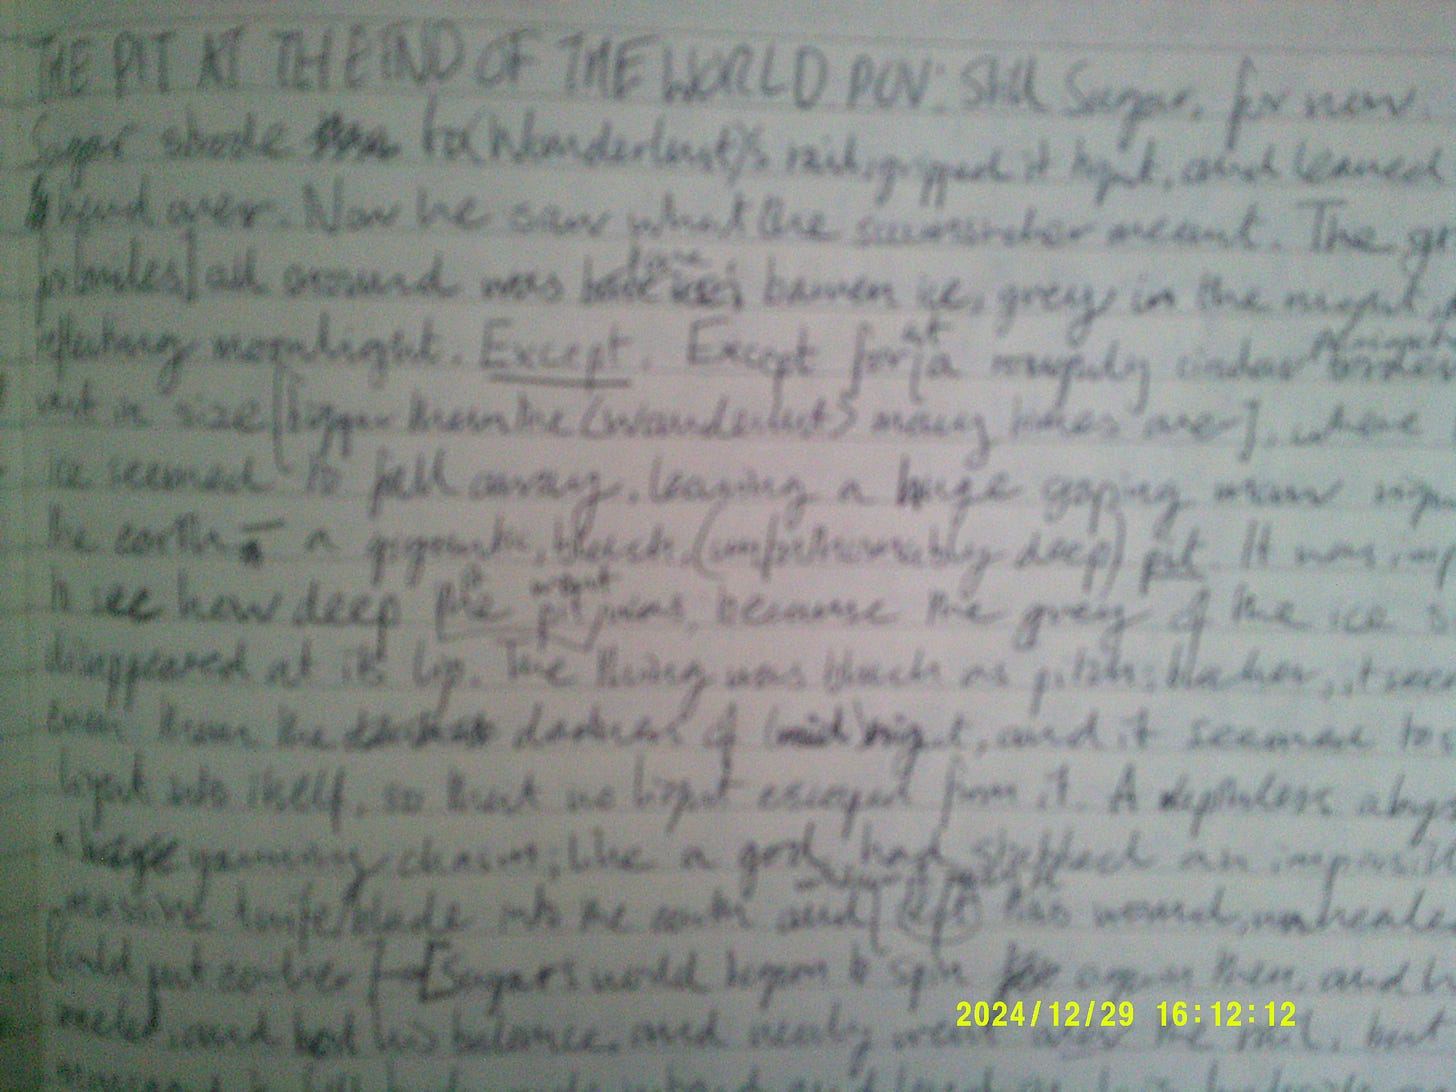 THE PIT AT THE END OF THE WORLD POV: Still Sagar, for now.
Sagar strode to (Wanderlust)'s rail, gripped it tight, and leaned
head over. Now he saw what the meant. The
for miles] all around was barren ice, grey in the night,
moonlight. Except. Except for a roughly circular
in size [bigger than the (Wanderlust) many times over], where
ice seemed to fall away, leaving a huge gaping maw
the earth – a gigantic, black, (unfathomably deep) pit. It was
to see how deep it went, because the grey of the ice
disappeared at its lip. The thing was black as pitch; blacker, it
even than the darkness of (mid)night, and it seemed to
light into itself, so that no light escaped from it. A depthless
huge yawning chasm, like a god had stabbed an
massive knife/blade into the earth and left this wound, unhealed
[Could put earlier] – [Sagar's world began to spin again then, and
and lost his balance, and nearly went over the rail, but
2024/12/29 16:12:12